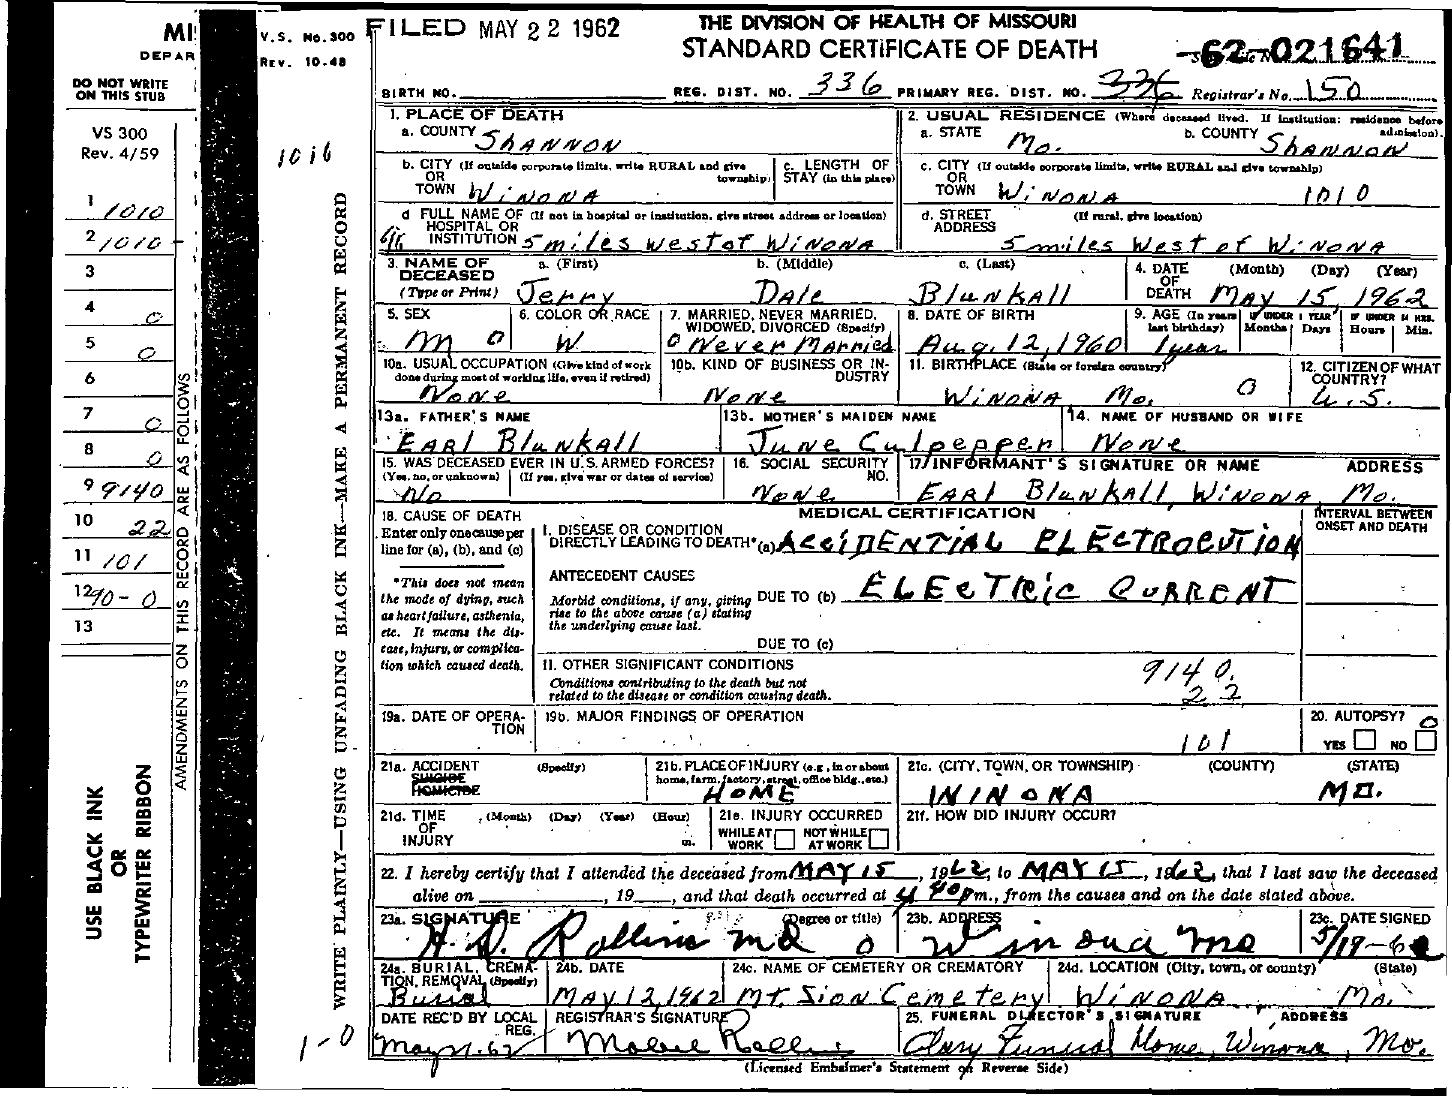 MI
DEPAR
DO NOT WRITE
ON THIS STUB
VS 300
Rev. 4/59
1 1010
2 1010 -
3
4 0
5 0
6
7 0
8 0
9 9140
10 22
11 101
12 90-0
13
USE BLACK INK
OR
TYPEWRITER RIBBON
AMENDMENTS ON THIS RECORD ARE AS FOLLOWS
V.S. No. 300
REV. 10-48
1016
WRITE PLAINLY—USING UNFADING BLACK INK—MAKE A PERMANENT RECORD
1-0
FILED MAY 22 1962
THE DIVISION OF HEALTH OF MISSOURI
STANDARD CERTIFICATE OF DEATH
-62-021641
BIRTH NO.
REG. DIST. NO. 336 PRIMARY REG. DIST. NO. 336 Registrar's No. 150
1. PLACE OF DEATH
a. COUNTY Shannon
b. CITY (If outside corporate limits, write RURAL and give township)
OR
TOWN Winona
c. LENGTH OF
STAY (in this place)
d FULL NAME OF (If not in hospital or institution, give street address or location)
HOSPITAL OR
INSTITUTION 5 miles west of Winona
2. USUAL RESIDENCE (Where deceased lived. If institution: residence before admission).
a. STATE Mo.
b. COUNTY Shannon
c. CITY (If outside corporate limits, write RURAL and give township)
OR
TOWN Winona 1010
d. STREET (If rural, give location)
ADDRESS 5 miles West of Winona
3. NAME OF
DECEASED
(Type or Print)
a. (First) Jerry
b. (Middle) Dale
c. (Last) Blunkall
4. DATE (Month) (Day) (Year)
OF
DEATH May 15, 1962
5. SEX
M 0
6. COLOR OR RACE
W
7. MARRIED, NEVER MARRIED,
WIDOWED, DIVORCED (Specify)
0 Never Married
8. DATE OF BIRTH
Aug. 12, 1960
9. AGE (In years last birthday) IF UNDER 1 YEAR Months Days IF UNDER 24 HRS. Hours Min.
1 year
10a. USUAL OCCUPATION (Give kind of work
done during most of working life, even if retired)
None
10b. KIND OF BUSINESS OR IN-
DUSTRY
None
11. BIRTHPLACE (State or foreign country)
Winona Mo. 0
12. CITIZEN OF WHAT
COUNTRY?
U.S.
13a. FATHER'S NAME
Earl Blunkall
13b. MOTHER'S MAIDEN NAME
June Culpepper
14. NAME OF HUSBAND OR WIFE
None
15. WAS DECEASED EVER IN U.S. ARMED FORCES?
(Yes, no, or unknown) (If yes, give war or dates of service)
No
16. SOCIAL SECURITY
NO.
None
17. INFORMANT'S SIGNATURE OR NAME ADDRESS
Earl Blunkall, Winona, Mo.
18. CAUSE OF DEATH
Enter only one cause per
line for (a), (b), and (c)
*This does not mean
the mode of dying, such
as heart failure, asthenia,
etc. It means the dis-
ease, injury, or complica-
tion which caused death.
MEDICAL CERTIFICATION
INTERVAL BETWEEN
ONSET AND DEATH
I. DISEASE OR CONDITION
DIRECTLY LEADING TO DEATH*(a) ACCIDENTIAL ELECTROCUTION
ANTECEDENT CAUSES
Morbid conditions, if any, giving
rise to the above cause (a) stating
the underlying cause last.
DUE TO (b) ELECTRIC CURRENT
DUE TO (c)
II. OTHER SIGNIFICANT CONDITIONS
Conditions contributing to the death but not
related to the disease or condition causing death.
9140.
22
19a. DATE OF OPERA-
TION
19b. MAJOR FINDINGS OF OPERATION
101
20. AUTOPSY? 0
YES NO
21a. ACCIDENT (Specify)
SUICIDE
HOMICIDE
21b. PLACE OF INJURY (e.g., in or about
home, farm, factory, street, office bldg., etc.)
HOME
21c. (CITY, TOWN, OR TOWNSHIP) (COUNTY) (STATE)
WINONA MO.
21d. TIME (Month) (Day) (Year) (Hour)
OF
INJURY m.
21e. INJURY OCCURRED
WHILE AT WORK NOT WHILE AT WORK
21f. HOW DID INJURY OCCUR?
22. I hereby certify that I attended the deceased from MAY 15, 1962, to MAY 15, 1962, that I last saw the deceased
alive on , 19 , and that death occurred at 4 40 p m., from the causes and on the date stated above.
23a. SIGNATURE (Degree or title)
H. D. Rollins MD 0
23b. ADDRESS
Winona Mo
23c. DATE SIGNED
5/19-62
24a. BURIAL, CREMA-
TION, REMOVAL (Specify)
Burial
24b. DATE
May 17, 1962
24c. NAME OF CEMETERY OR CREMATORY
Mt. Sion Cemetery
24d. LOCATION (City, town, or county) (State)
Winona Mo.
DATE REC'D BY LOCAL
REG.
May 21-62
REGISTRAR'S SIGNATURE
Mabel Rollins
25. FUNERAL DIRECTOR'S SIGNATURE ADDRESS
Clary Funeral Home, Winona, Mo.
(Licensed Embalmer's Statement on Reverse Side)